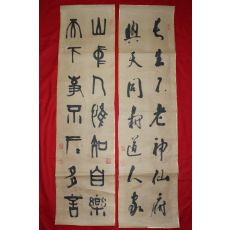 長生不老神仙府
與天同壽道人家
山中人知自樂
天下事不足多言